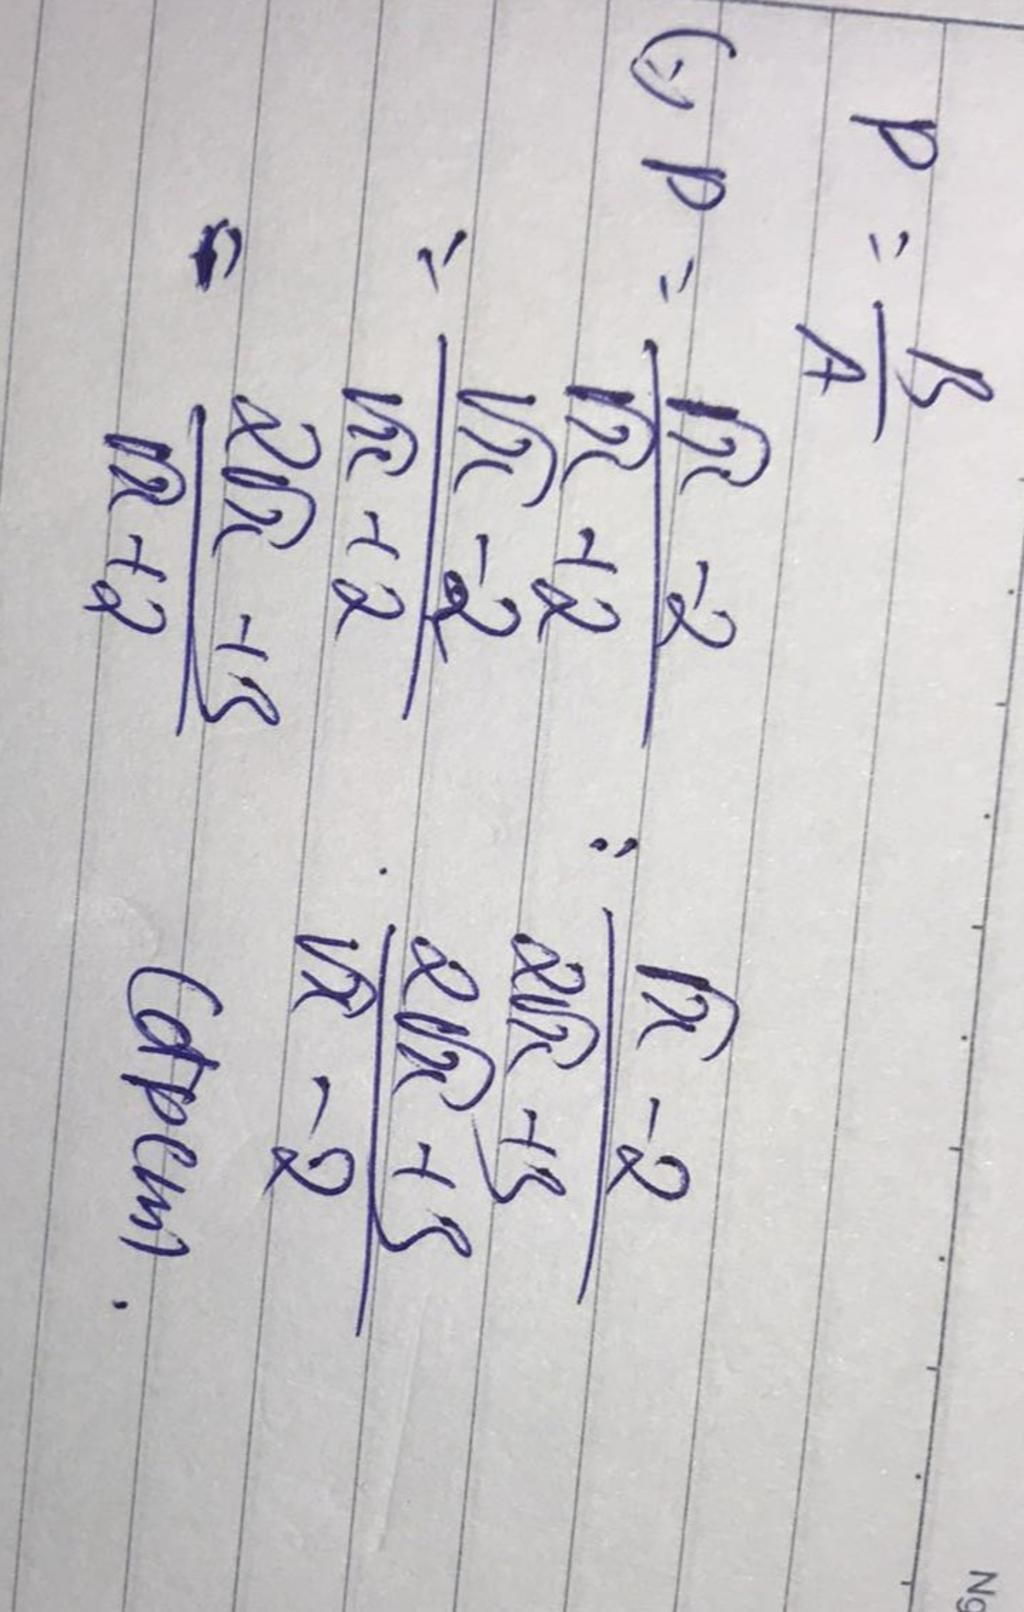 P = B/A
(=) P = (√x - 2)/(√x + 2) : (√x - 2)/(2√x + 3)
= (√x - 2)/(√x + 2) . (2√x + 3)/(√x - 2)
= (2√x + 3)/(√x + 2) (đpcm).
Ng